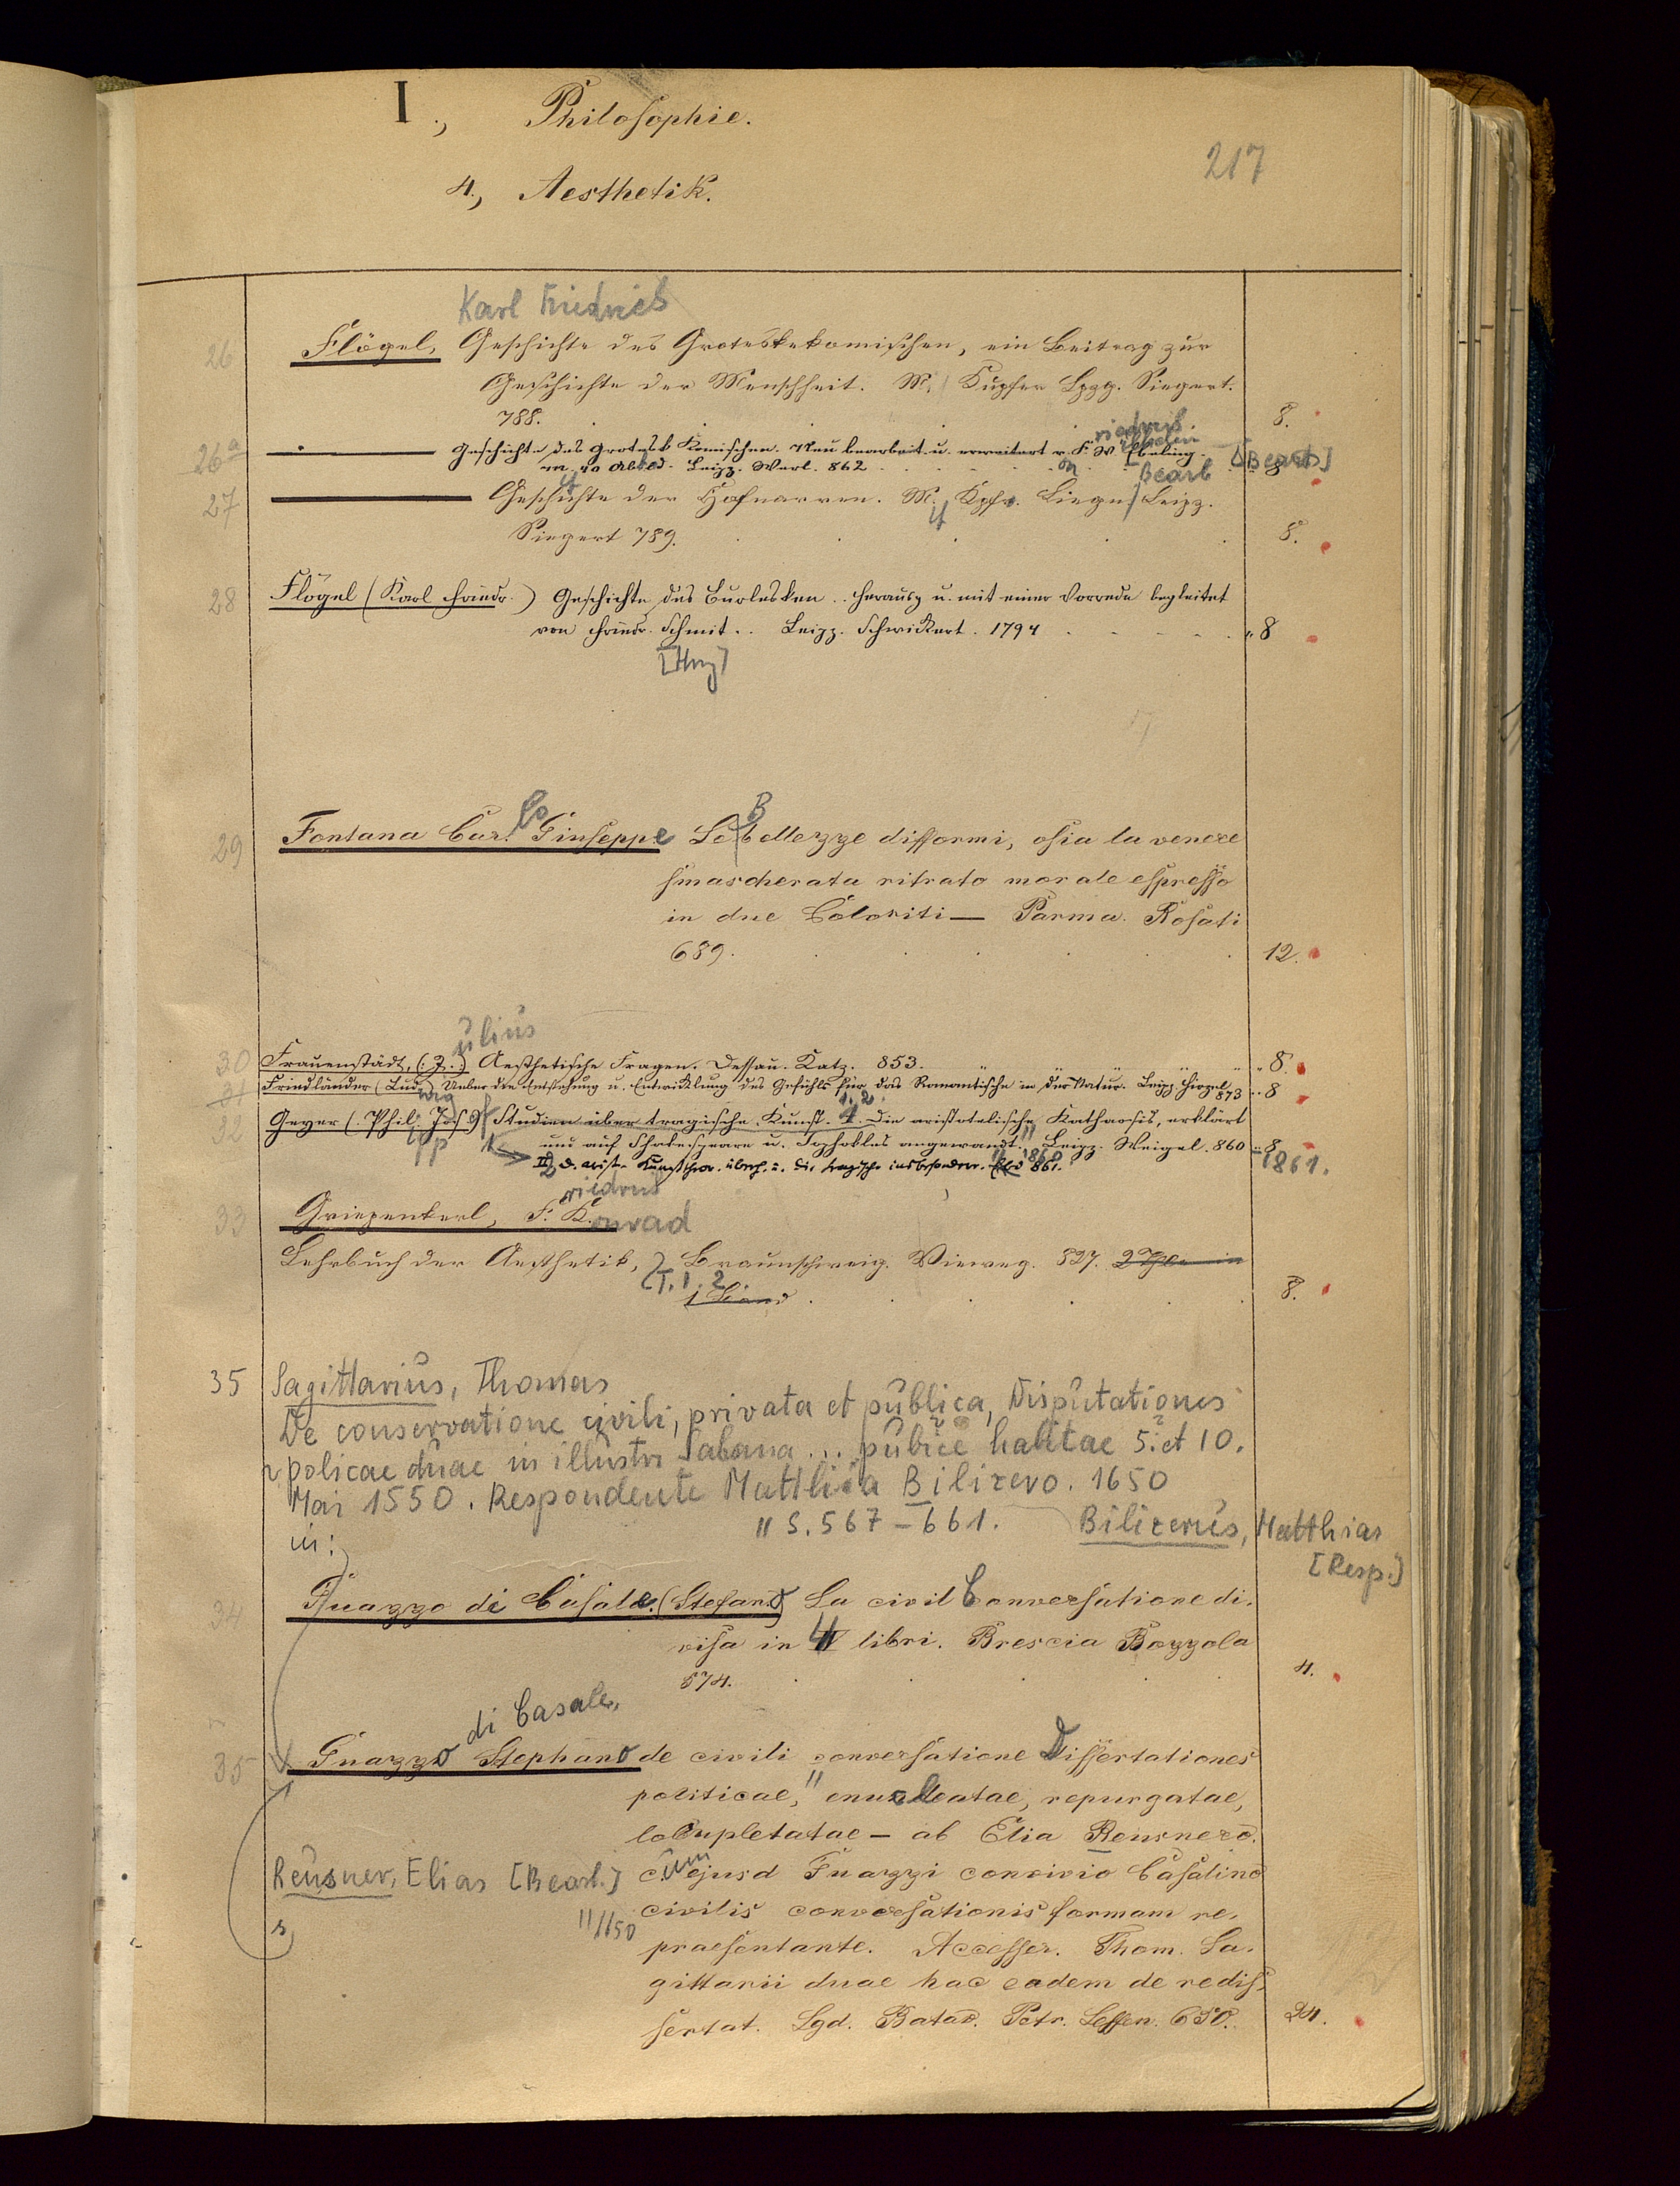 I., Philosophie.
217
4., Aesthetik.
Karl Friedrich
26 Flögel, Geschichte des Groteskekomischen, ein Beitrag zur
Geschichte der Menschheit. M. Kupfer Lpzg. Siegert.
788. 8.
riedrich
26a Geschichte des Grotesk Komischen. Neu bearbeit. u. erweitert v. F. W. Ebeling. [Bearb]
m. 40 Abbild. Leipz. Werl. 862 8
Bearb
27 Geschichte der Hofnarren. M. Kpfr. Liegn. Leipz.
Siegert 789. 8.
28 Flögel (Karl Friedr.) Geschichte des Burlesken .. Herausg u. mit einer Vorrede begleitet
von Friedr. Schmit .. Leipz. Schwickert. 1794 " 8
[Hrsg]
29 Fontana Carlo Giuseppe Le Bellezze difformi, osia la venere
smascherata ritrato morale espresso
in due Coloriti — Parma. Rosati
689. 12.
ulius
30 Frauenstädt, (J.) Aesthetische Fragen. Dessau. Katz. 853. " 8.
31 Friedländer (Ludwig) Ueber die Entstehung u. Entwicklung des Gefühls für das Romantische in der Natur. Leipz. Hirzel 873 " 8
32 Geyer (Phil. Jos.) Studien über tragische Kunst. 1. Die aristotelische Katharsis, erklärt
und auf Shakespeare u. Sophokles angewandt. Leipz. Weigel. 860 " 8
II) D. arist. Kunsttheor. überh. u. die tragische insbesondere. 861.
1860 1861.
riedrich
33 Griepenkerl, F. Konrad
Lehrbuch der Aesthetik, Braunschweig. Vieweg. 827. 2 Thle in
T. 1. 2.
1 Band 8.
35 Sagittarius, Thomas
De conservatione civili, privata et publica, Disputationes
policae duae in illustri Salana ... publice habitae 5. et 10.
Mai 1550. Respondente Matthia Bilizero. 1650
" S. 567-661. Bilizerus, Matthias
in: [Resp.]
34 Guazzo di Casale. (Stefano) La civil Conversatione di.
visa in 4 libri. Brescia Bozzola
574. 4.
di Casale,
35 Guazzo Stephano de civili conversatione Dissertationes
politicae, " enucleatae, repurgatae,
locupletatae — ab Elia Reusnero.
Reusner, Elias [Bearb.] cum ejusd Guazzi convivio Casalino
civilis conversationis formam re.
" 1650
praesentante. Accesser. Thom. Sa.
gittarii duae hac eadem de re dis.
sertat. Lgd. Batav. Petr. Leffen. 650. 24.